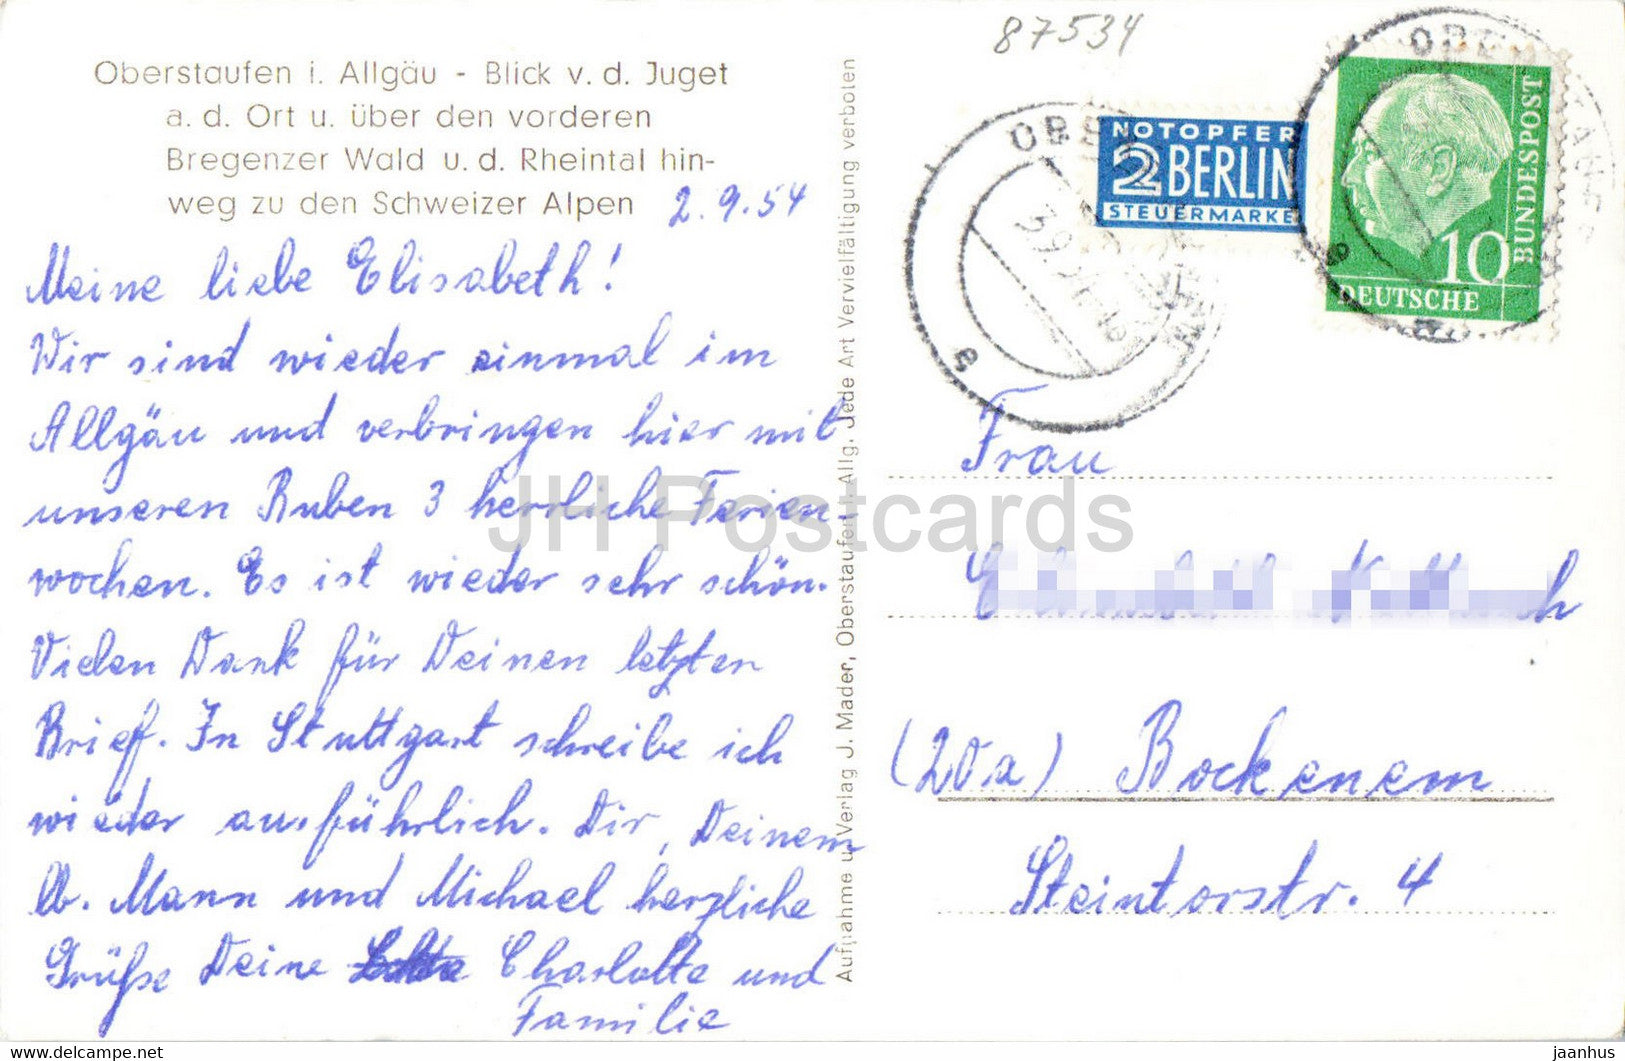 Oberstaufen i. Allgäu - Blick v. d. Juget
a. d. Ort u. über den vorderen
Bregenzer Wald u. d. Rheintal hin-
weg zu den Schweizer Alpen
2.9.54
Meine liebe Elisabeth!
Wir sind wieder einmal im
Allgäu und verbringen hier mit
unseren Buben 3 herrliche Ferien-
wochen. Es ist wieder sehr schön.
Vielen Dank für Deinen letzten
Brief. In Stuttgart schreibe ich
wieder ausführlich. Dir, Deinem
lb. Mann und Michael herzliche
Grüße Deine Charlotte und
Familie
Aufnahme u. Verlag J. Mader, Oberstaufen i. Allg. Jede Art Vervielfältigung verboten
87534
NOTOPFER
2 BERLIN
STEUERMARKE
DEUTSCHE
BUNDESPOST
10
Frau
(20a) Bockenem
Steintorstr. 4
JH Postcards
www.delcampe.net
jaanhus